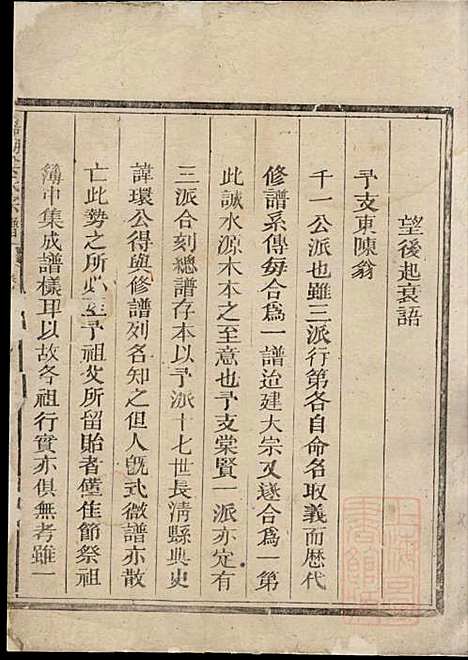 望後起衰語
予支東陳翁
千一公派也雖三派行第各自命名取義而歷代
修譜系傳每合為一譜迨建大宗又遂合為一第
此誠水源木本之至意也予支棠賢一派亦定有
三派合刻總譜存本以予派十七世長淸縣典史
諱環公得與修譜列名知之但人旣式微譜亦散
亡此勢之所必至予祖父所留貽者僅隹節祭祖
簿中集成譜樣耳以故各祖行實亦俱無考雖一
宗譜